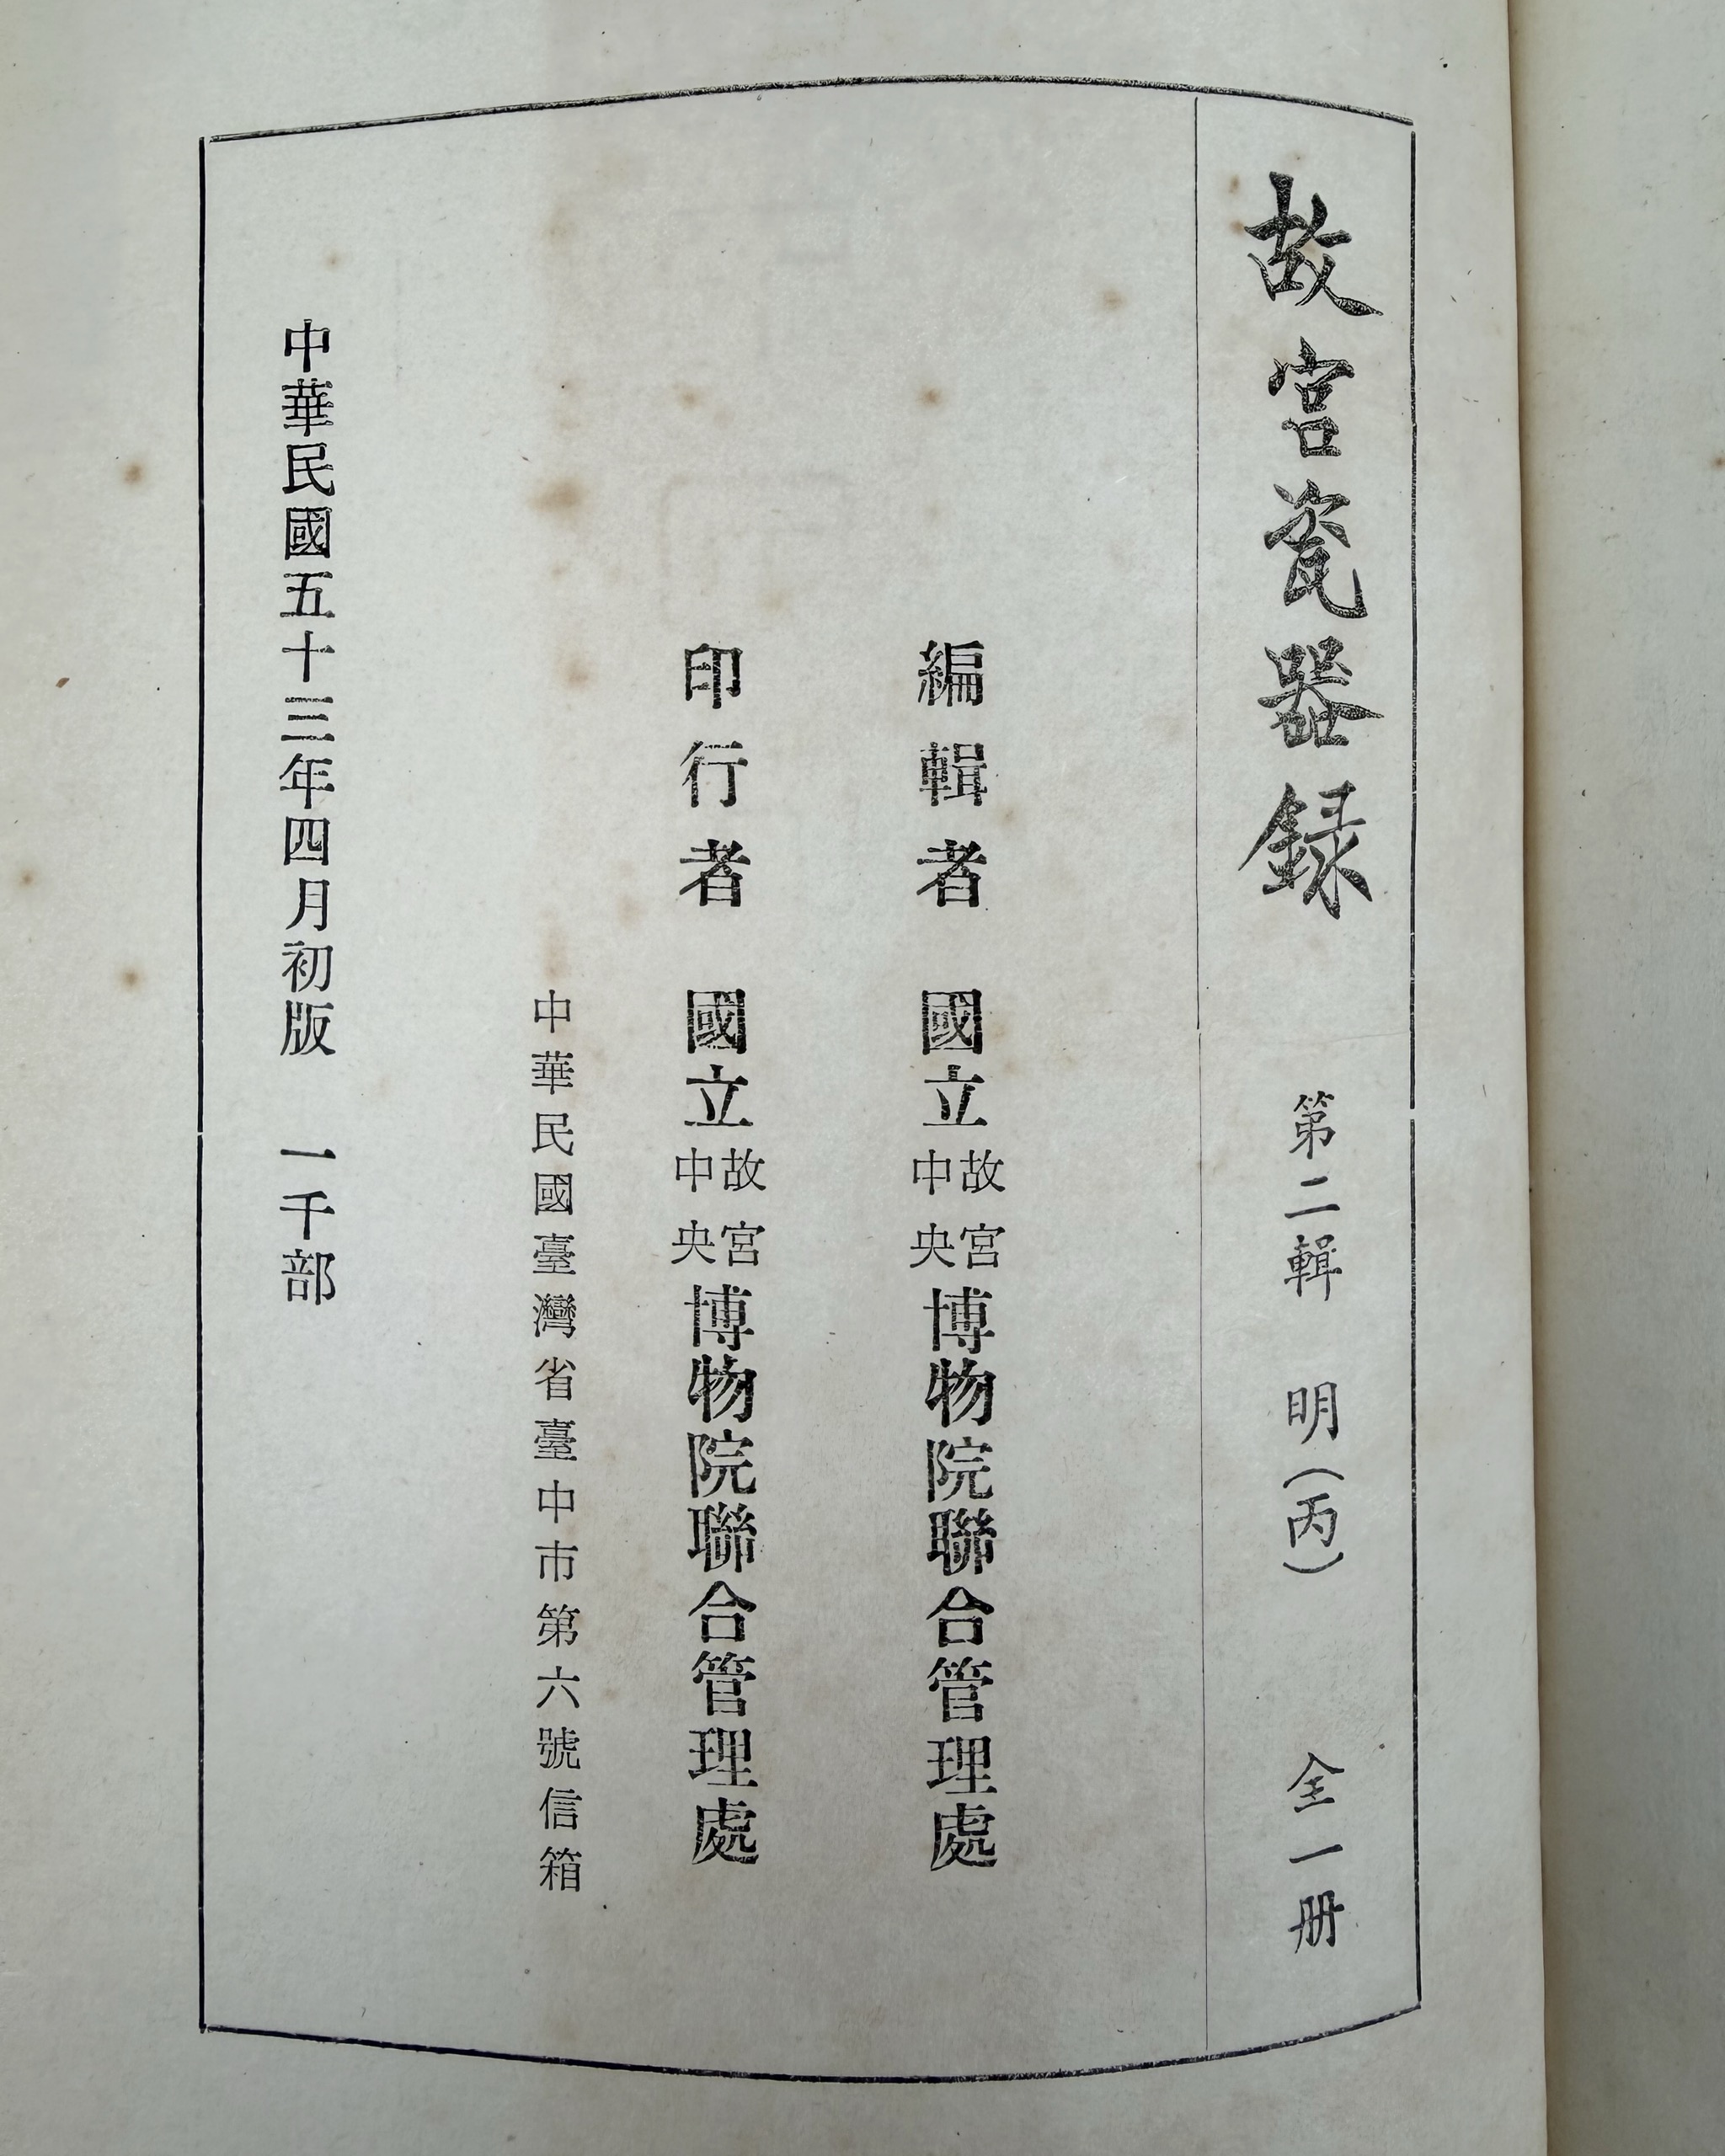 故宮瓷器録 第二輯 明(丙) 全一册
編輯者 國立故宮中央博物院聯合管理處
印行者 國立故宮中央博物院聯合管理處
中華民國臺灣省臺中市第六號信箱
中華民國五十三年四月初版 一千部